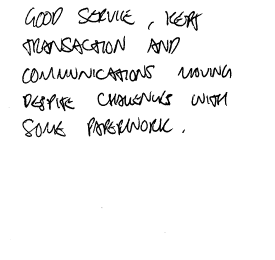 GOOD SERVICE, KEPT
TRANSACTION AND
COMMUNICATIONS MOVING
DESPITE CHALLENGES WITH
SOME PAPERWORK.